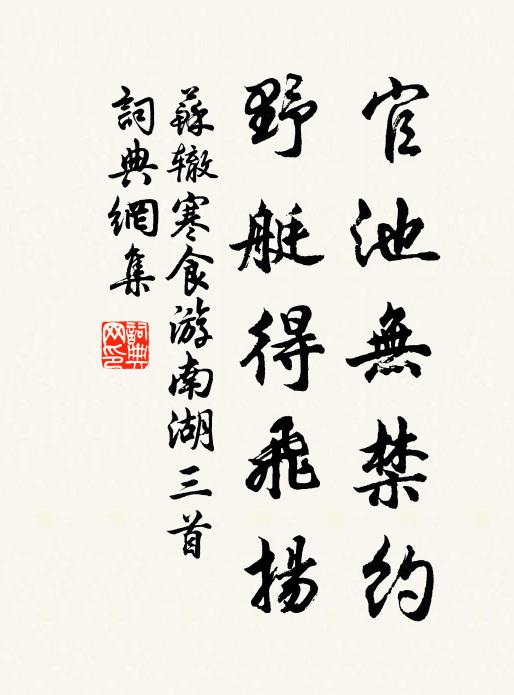 官池無禁約
野艇得飛揚
蘇辙寒食游南湖三首
詞典網集
詞典網印